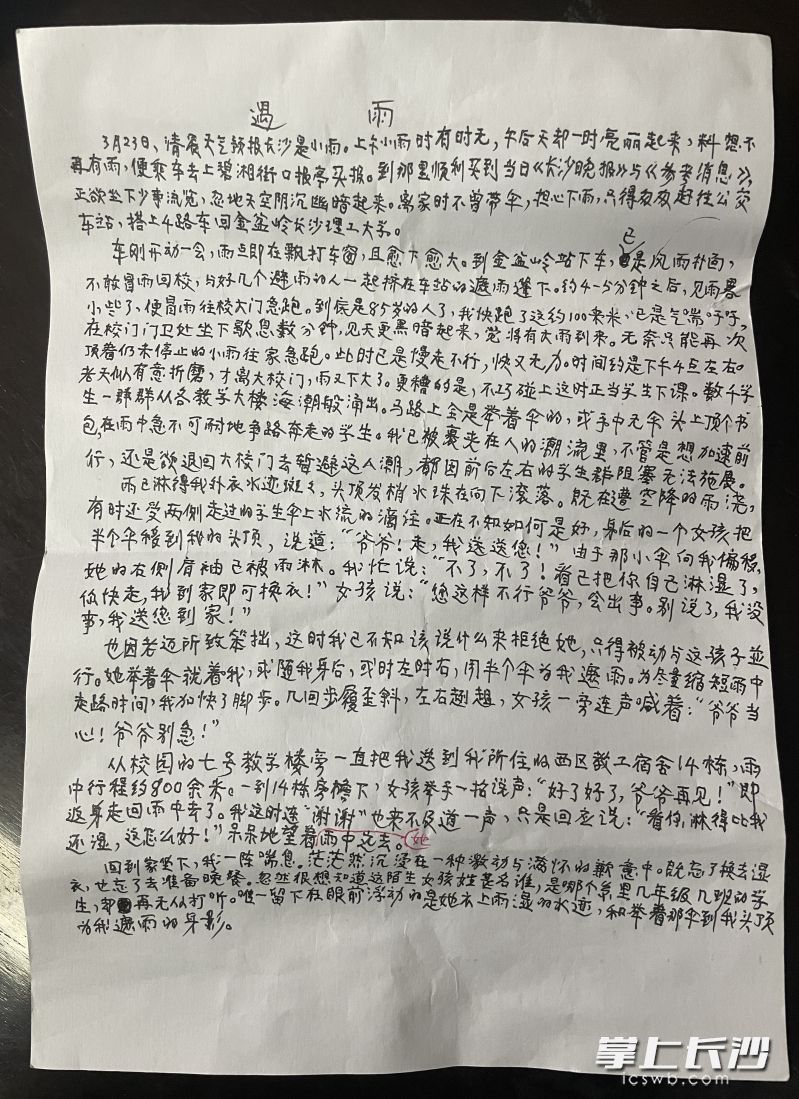 遇 雨
3月23日、清晨天气预报长沙是小雨。上午小雨时有时无，午后天却一时亮丽起来，料想不
再有雨，便乘车去上碧湘街口报亭买报。到那里顺利买到当日《长沙晚报》与《参考消息》，
正欲坐下少事浏览，忽地天空阴沉幽暗起来。离家时不曾带伞，担心下雨，只得匆匆赶往公交
车站，搭上4路车回金盆岭长沙理工大学。
车刚开动一会，雨点即在飘打车窗，且愈下愈大。到金盆岭站下车，已是风雨扑面，
不敢冒雨回校，与好几个避雨的人一起挤在车站的遮雨蓬下。约4-5分钟之后，见雨略
小些了，便冒雨往校大门急跑。到底是85岁的人了，我快跑了这约100来米，已是气喘吁吁，
在校门门卫处坐下歇息数分钟，见天更黑暗起来，觉将有大雨到来。无奈只能再次
顶着仍未停止的小雨往家急跑。此时已是慢走不行，快又无力。时间约是下午4点左右。
老天似有意折磨，才离大校门，雨又下大了。更糟的是，不巧碰上这时正当学生下课。数千学
生一群群从各教学大楼海潮般涌出。马路上全是举着伞的，或手中无伞头上顶个书
包，在雨中急不可耐地争路奔走的学生。我已被裹夹在人的潮流里，不管是想加速前
行，还是欲退回大校门去暂避这人潮，都因前后左右的学生群阻塞无法施展。
雨已淋得我外衣水迹斑斑，头顶发梢水珠在向下滚落。既在遭空降的雨浇，
有时还受两侧走过的学生伞上水流的滴注。正在不知如何是好，身后的一个女孩把
半个伞移到我的头顶，说道：“爷爷！走，我送送您！”由于那小伞向我偏移，
她的右侧肩袖已被雨淋。我忙说：“不了，不了！看已把你自己淋湿了，
你快走，我到家即可换衣！”女孩说：“您这样不行爷爷，会出事。别说了，我没
事，我送您到家！”
也因老迈所致笨拙，这时我已不知该说什么来拒绝她，只得被动与这孩子並
行。她举着伞就着我，或随我身后，或时左时右，用半个伞为我遮雨。为尽量缩短雨中
走路时间，我加快了脚步。几回步履歪斜，左右趔趄，女孩一旁连声喊着：“爷爷当
心！爷爷别急！”
从校园的七号教学楼旁一直把我送到我所住的西区教工宿舍14栋，雨
中行程约800余米。一到14栋旁檐下，女孩举手一抬说声：“好了好了，爷爷再见！”即
返身走回雨中去了。我这时连“谢谢”也来不及道一声，只是回应说：“看你淋得比我
还湿，这怎么好！”呆呆地望着她雨中远去。
回到家坐下，我一阵喘息。茫茫然沉浸在一种激动与满怀的歉意中。既忘了换去湿
衣，也忘了去准备晚餐。忽然很想知道这陌生女孩姓甚名谁，是哪个系里几年级几班的学
生，却再无从打听。唯一留下在眼前浮动的是她衣上雨湿的水迹，和举着那伞到我头顶
为我遮雨的身影。
掌上长沙
icswb.com